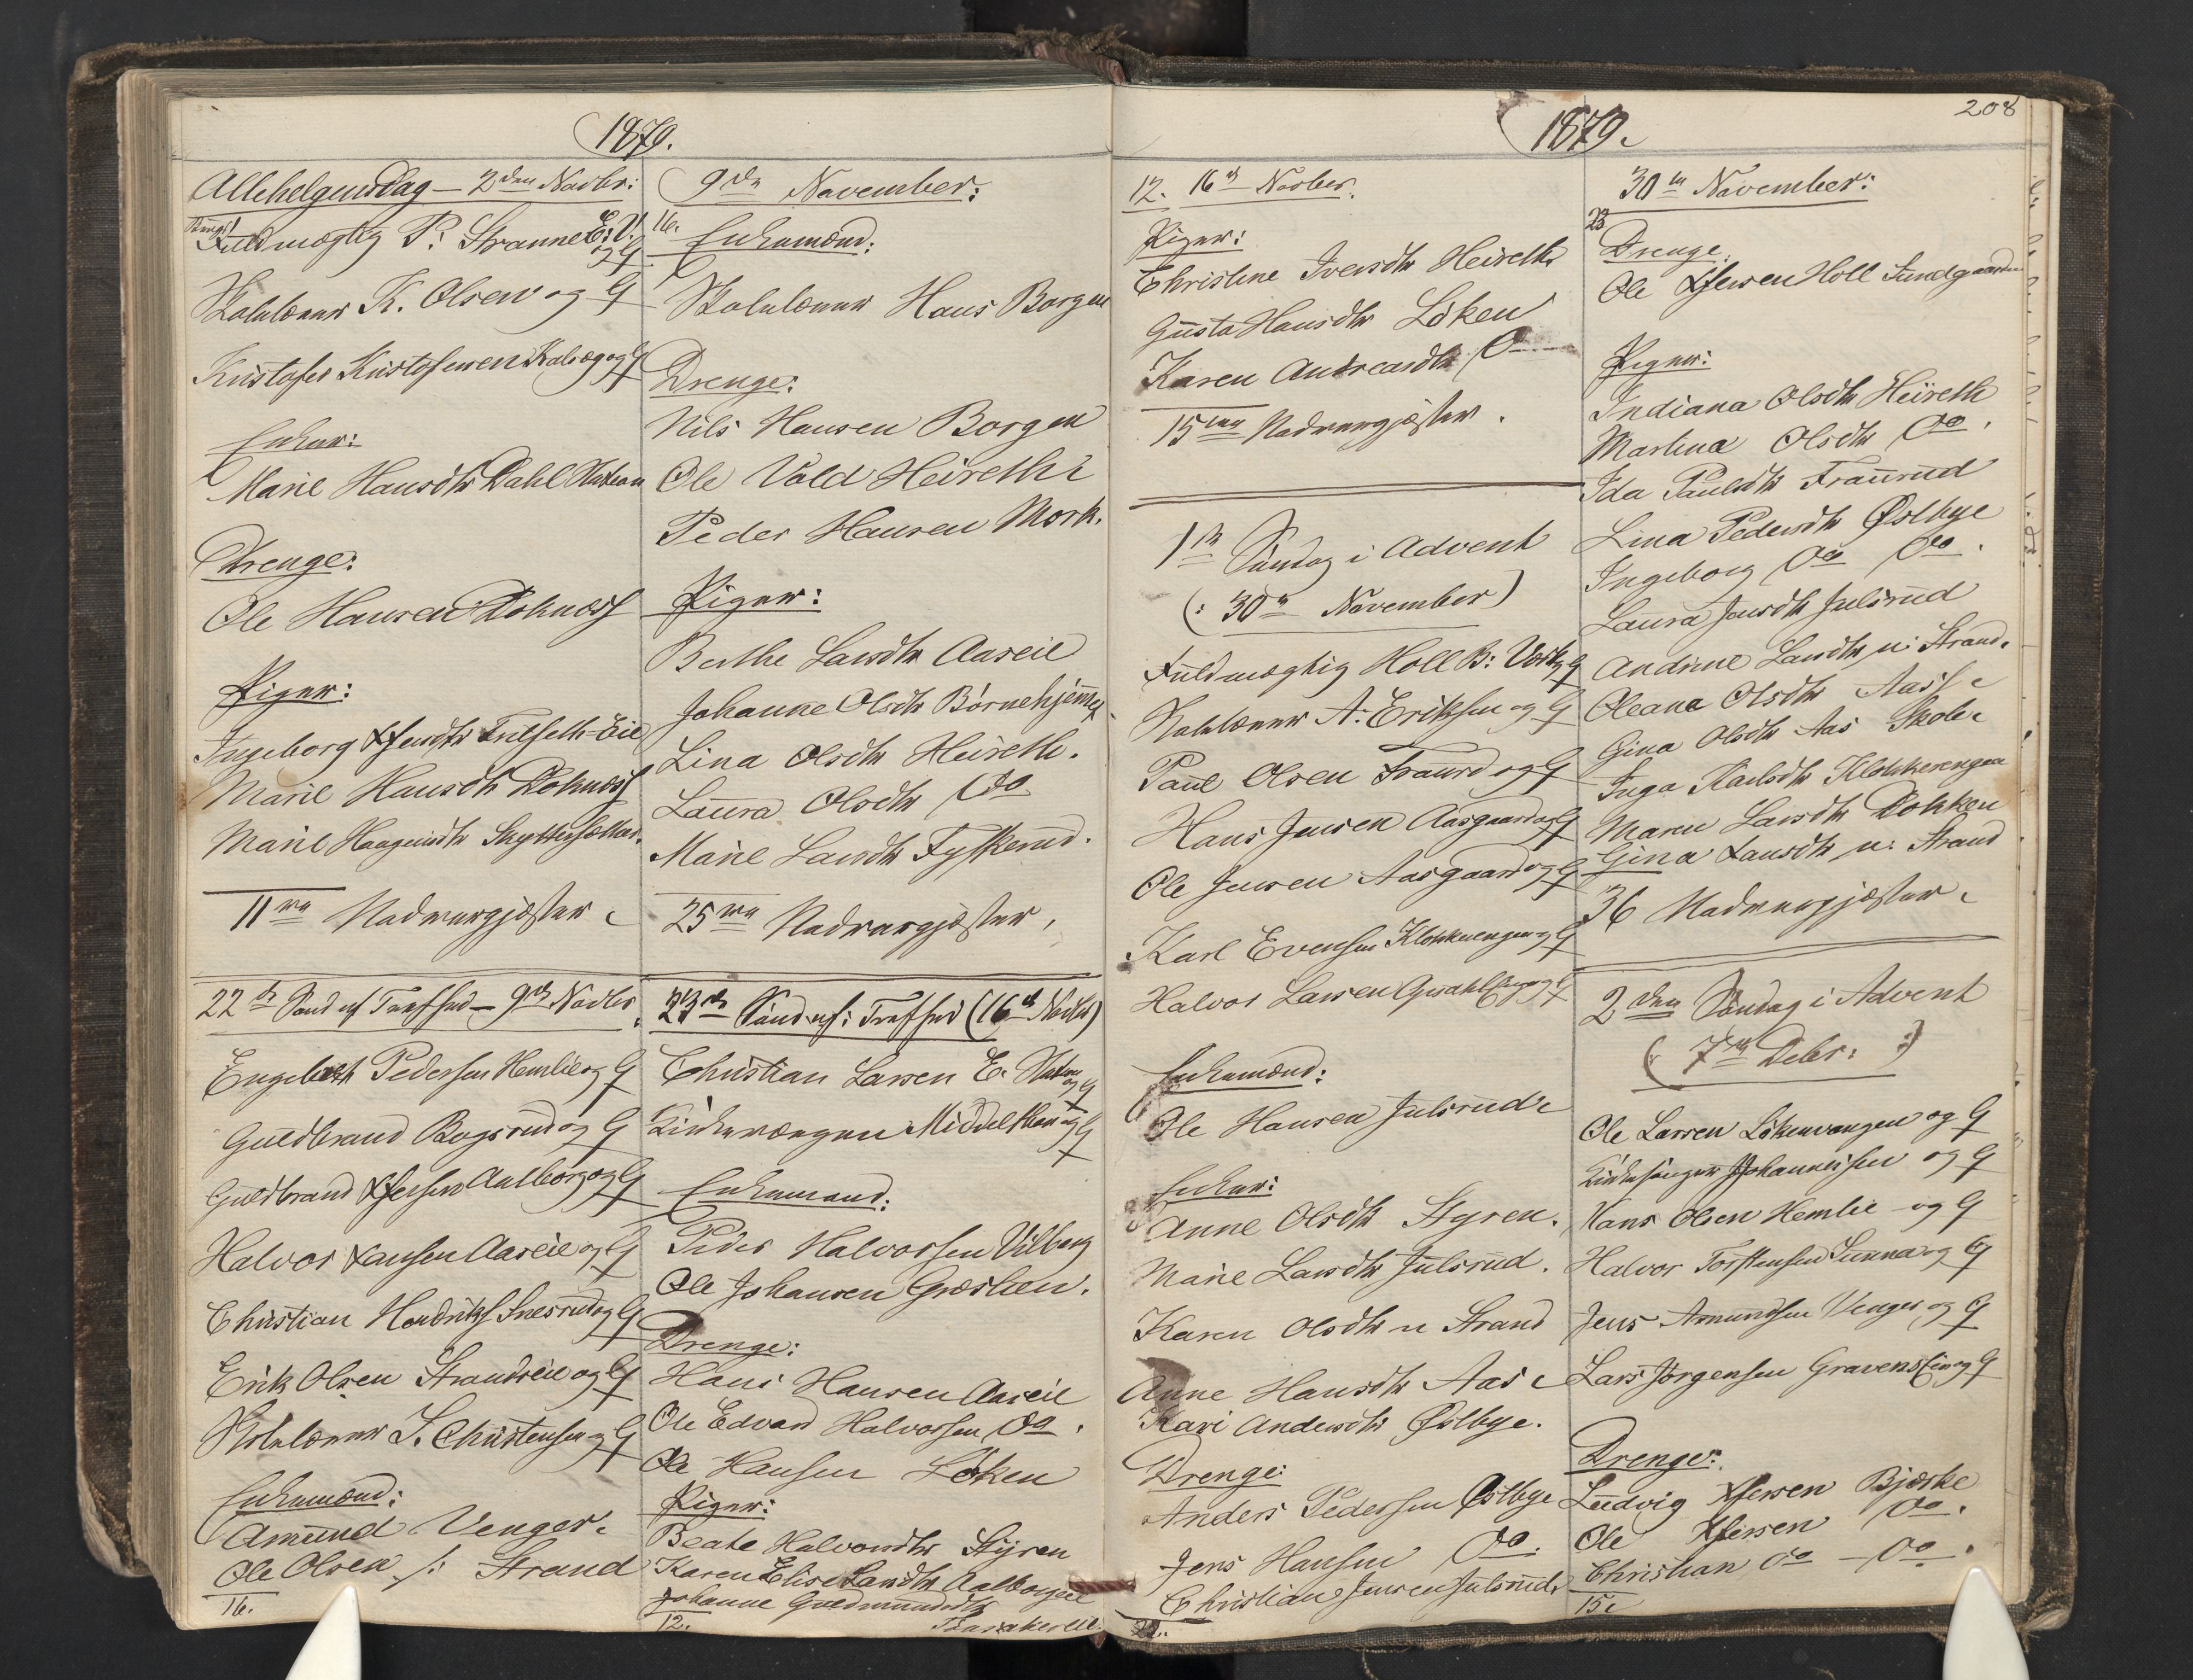 1879.
Allehelgensdag - 2den Novbr:
Fuldmægtig P: Stranne E: V. og G
Skolelærer K. Olsen og G
Kristofer Kristofersen og G
Enker:
Marie Hansdtr Dahl
Drenge:
Ole Hansen Dokness
Piger:
Ingeborg
Marie Hansdtr Dokness
Marie Haagensdtr
11 Nadvergjæster
22de Sønd. ef. Trefhed - 9de Novbr.
Engebret Pedersen Hemlie og G
Guldbrand Bogsrud og G
Guldbrand Aalborg og G
Halvor Larssen Aaseie og G
Christian Hendriks. og G
Erik Olsen Strandseie og G
Skolelærer S. Christensen og G
Enkemænd:
Amund Venger.
Ole Olsen s: Strand
16.
9de November:
16.
Enkemænd:
Skolelærer Hans Borgen
Drenge:
Nils Hansen Borgen
Ole Vold Heireth
Peder Hansen Mork.
Piger:
Berthe Larsdtr Aaseie
Johanne Olsdtr Børnehjemmet
Lina Olsdtr Heireth.
Laura Olsdtr Do
Marie Larsdtr Fyskerud.
25 Nadvergjæster.
23de Sønd. ef: Trefhed (16de Novbr)
Christian Larsen E. og G
Kirkeværgen Middelthon og G
Enkemænd:
Peder Halvorsen Vilberg
Ole Johansen Græslien.
Drenge:
Hans Hansen Aaseie
Ole Edvard Halvorsen Do.
Ole Hansen Løken
Piger:
Beate Halvorsdtr Styren
Karen Elise Larsdtr
Johanne Guldmundsdtr
12.
1879.
208
12. 16de Novber.
Piger:
Christine Iversdtr Heireth
Gusta Hansdtr Løken
Karen Andreasdtr Do
15 Nadvergjæster.
1ste Søndag i Advent
(: 30te November)
Fuldmægtig Holl B: og G
Skolelærer A. Eriksen og G
Paul Olsen Traurud og G
Hans Jensen Aasgaard og G
Ole Jensen Aasgaard og G
Karl Evensen Klokkerengen og G
Halvor Larsen og G
Enkemænd:
Ole Hansen Julsrud
Enker:
Anne Olsdtr Styren.
Marie Larsdtr Julsrud.
Karen Olsdtr n Strand
Anne Hansdtr Aas
Kari Andersdtr Østbye.
Drenge:
Anders Pedersen Østbye
Jens Hansen Do.
Christian Jensen Julsrud.
30te November:
23
Drenge:
Ole Holl Sundgaarden
Piger:
Indiana Olsdtr Heireth
Martina Olsdtr Do.
Ida Paulsdtr Traurud
Lina Pedersdtr Østbye
Ingeborg Do Do.
Laura Jensdtr Julsrud
Andrine Larsdtr n: Strand.
Oleana Olsdtr Aas
Gina Olsdtr Aas Skole.
Inga Karlsdtr Klokkerengen
Maren Larsdtr Dokken
Gina Larsdtr n: Strand
36 Nadvergjæster.
2den Søndag i Advent
(: 7de Decbr: :)
Ole Larsen Løkenvangen og G
Kirkesanger Johannesen og G
Hans Olsen Hemlie og G
Halvor Torstensen Sunna og G
Jens Amundsen Venger og G
Lars Jørgensen Gravens og G
Drenge:
Ludvig Bjørke
Ole Do.
Christian Do - Do.
15.